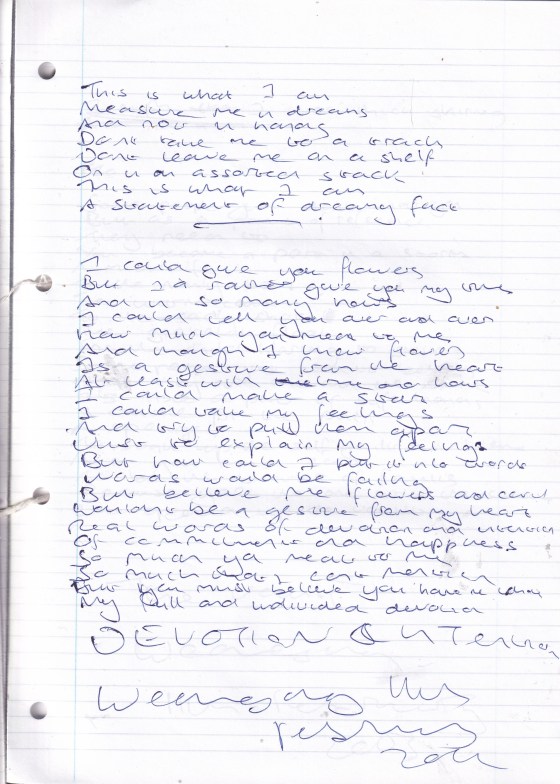 This is what I am
Measure me in dreams
And not in hands
Dont take me to a
Dont leave me on a shelf
Or in an assorted stack
This is what I am
A statement of dreamy fact
I could give you flowers
But I'd rather give you my
And in so many
I could tell you over and over
How much you mean to me
And though I know flowers
Is a gesture from the heart
At least with and
I could make a start
I could take my feelings
And try to pull them apart
Just to explain my feelings
But how could I put it into words
Words would be failing
But believe me flowers and
Wouldnt be a gesture from my heart
Real words of devotion and intention
Of commitment and happiness
So much you mean to me
So much that I cant mention
But you must believe you have
My full and undivided devotion
DEVOTION & INTENTION
Wednesday
February